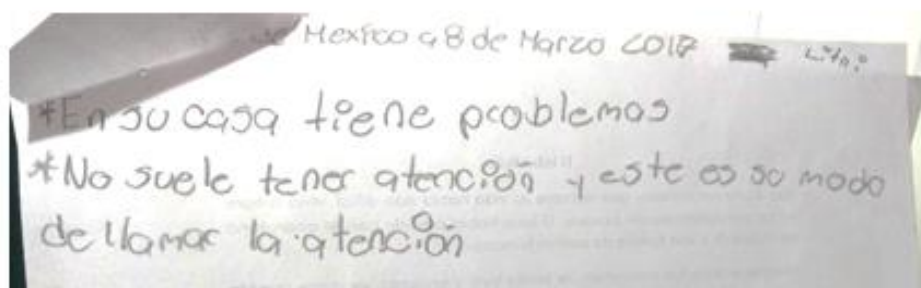 de Mexico a 8 de Marzo 2017
*En su casa tiene problemas
*No suele tener atención y este es so modo
de llamar la atención